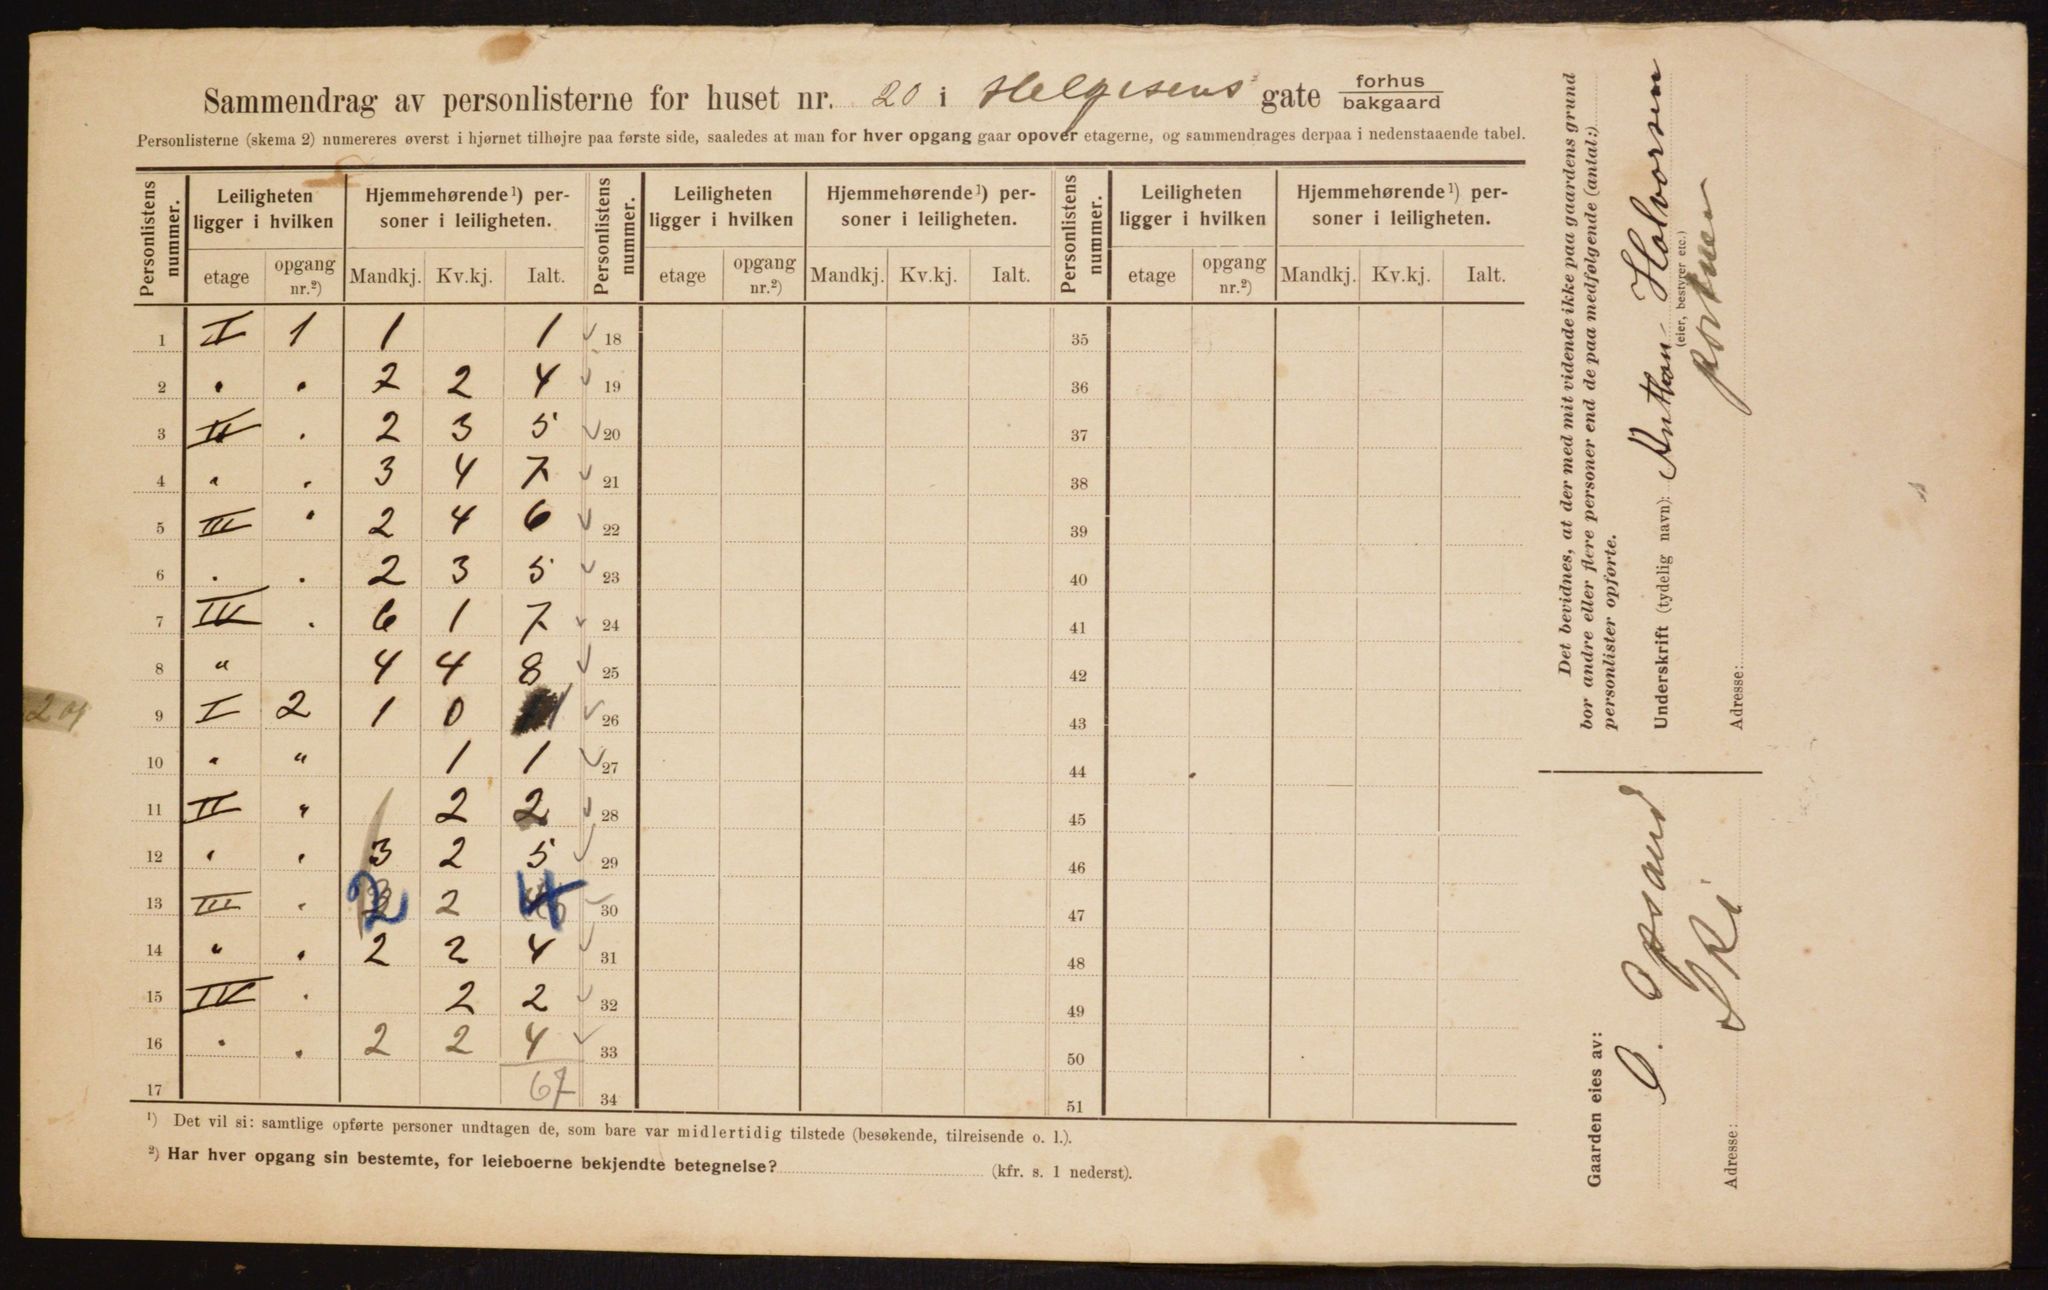 Sammendrag av personlisterne for huset nr. 20 i Helgesens gate forhus bakgaard
Personlisterne (skema 2) numereres øverst i hjørnet tilhøjre paa første side, saaledes at man for hver opgang gaar opover etagerne, og sammendrages derpaa i nedenstaaende tabel.
Personlistens nummer. Leiligheten ligger i hvilken Hjemmehørende¹) personer i leiligheten. Personlistens nummer. Leiligheten ligger i hvilken Hjemmehørende¹) personer i leiligheten. Personlistens nummer. Leiligheten ligger i hvilken Hjemmehørende¹) personer i leiligheten.
etage opgang nr.²) Mandkj. Kv.kj. Ialt. etage opgang nr.²) Mandkj. Kv.kj. Ialt. etage opgang nr.²) Mandkj. Kv.kj. Ialt.
1 I 1 1 1 ✓ 18 35
2 " " 2 2 4 ✓ 19 36
3 II " 2 3 5 ✓ 20 37
4 " " 3 4 7 ✓ 21 38
5 III " 2 4 6 ✓ 22 39
6 " " 2 3 5 ✓ 23 40
7 IV " 6 1 7 ✓ 24 41
8 " 4 4 8 ✓ 25 42
9 I 2 1 0 1 ✓ 26 43
10 " " 1 1 ✓ 27 44
11 II " 2 2 ✓ 28 45
12 " " 3 2 5 ✓ 29 46
13 III " 2 2 4 ✓ 30 47
14 " " 2 2 4 ✓ 31 48
15 IV " 2 2 ✓ 32 49
16 " " 2 2 4 ✓ 33 50
17 67 34 51
¹) Det vil si: samtlige opførte personer undtagen de, som bare var midlertidig tilstede (besøkende, tilreisende o. l.).
²) Har hver opgang sin bestemte, for leieboerne bekjendte betegnelse? (kfr. s. 1 nederst).
Det bevidnes, at der med mit vidende ikke paa gaardens grund
bor andre eller flere personer end de paa medfølgende (antal:)
personlister opførte.
Underskrift (tydelig navn): Anthon Halvorsen
(eier, bestyrer etc.)
portner
Adresse:
Gaarden eies av:
O. Opsand
Adresse: Ski